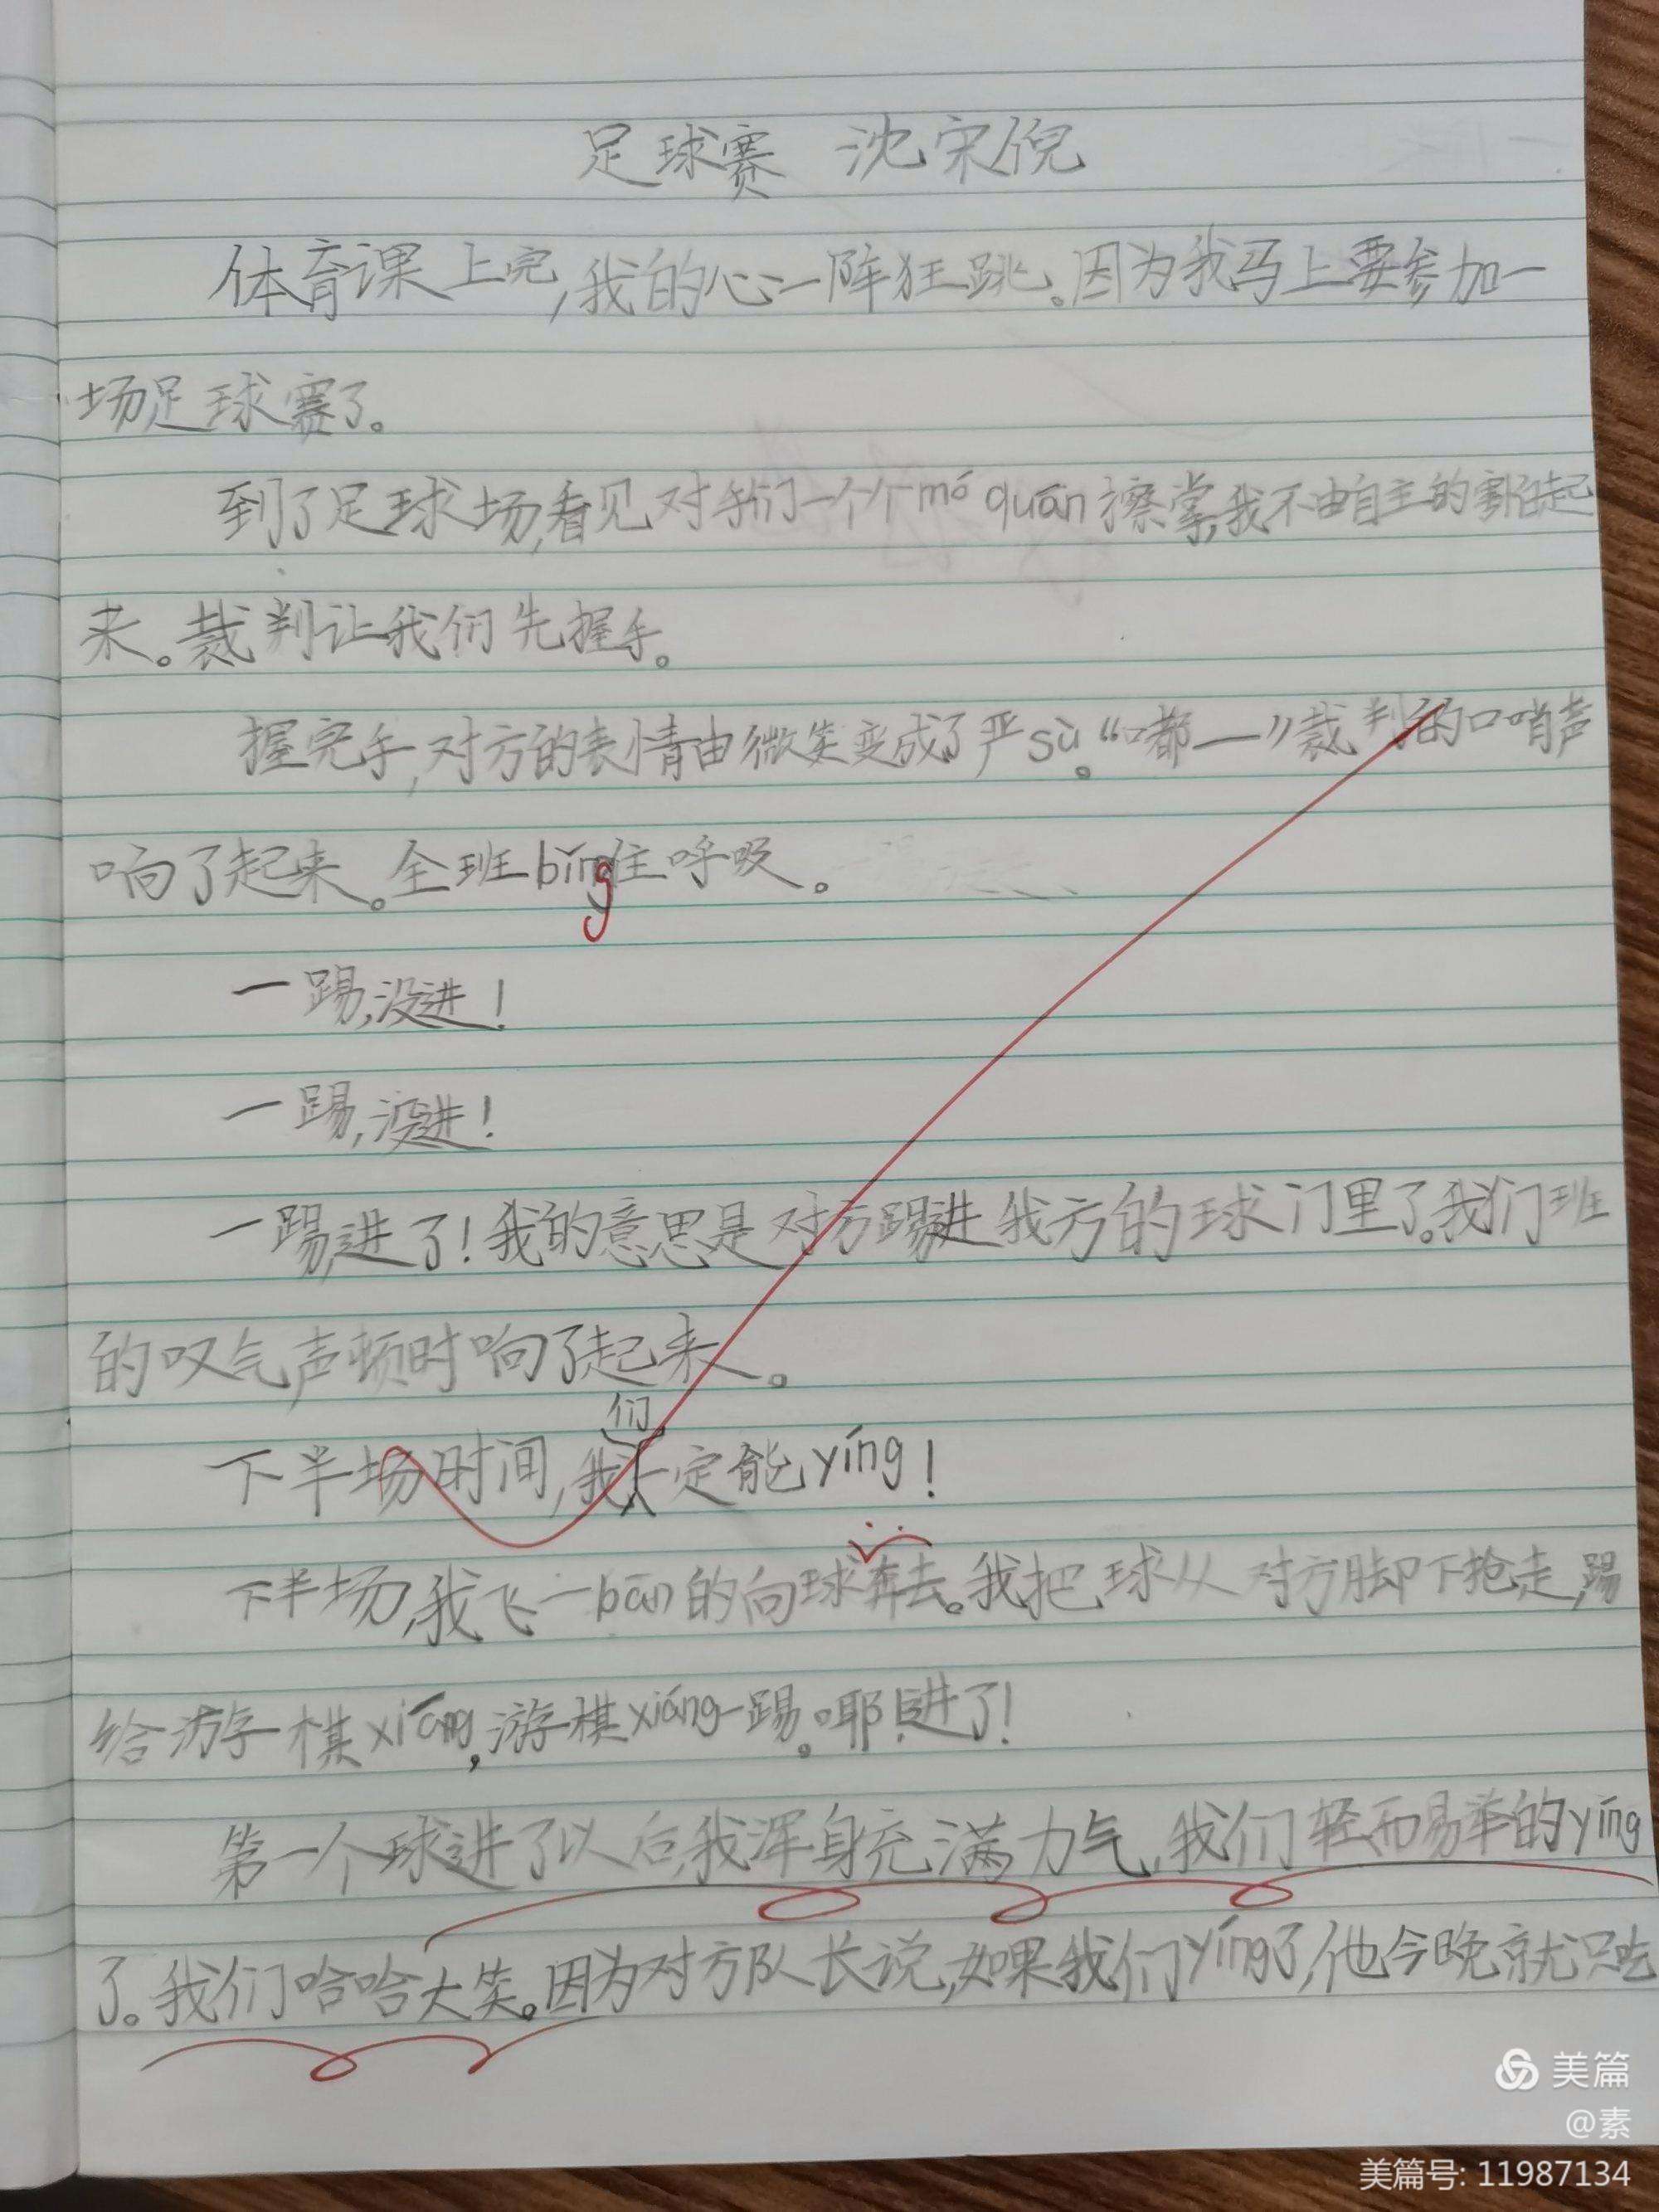 足球赛 沈宋倪
体育课上完,我的心一阵狂跳。因为我马上要参加一
场足球赛了。
到了足球场,看见对手们一个个mó quán擦掌,我不由自主的害怕起
来。裁判让我们先握手。
握完手,对方的表情由微笑变成了严sù。“嘟一”裁判的口哨声
响了起来。全班bǐng住呼吸。
一踢,没进!
一踢,没进!
一踢,进了!我的意思是对方踢进我方的球门里了。我们班
的叹气声顿时响了起来。
下半场时间,我们一定能yíng!
下半场,我飞一bān的向球奔去。我把球从对方脚下抢走,踢
给游棋xiáng,游棋xiáng一踢。耶!进了!
第一个球进了以后,我浑身充满力气,我们轻而易举的yíng
了。我们哈哈大笑。因为对方队长说,如果我们yíng了,他今晚就只吃
美篇
@素
美篇号: 11987134